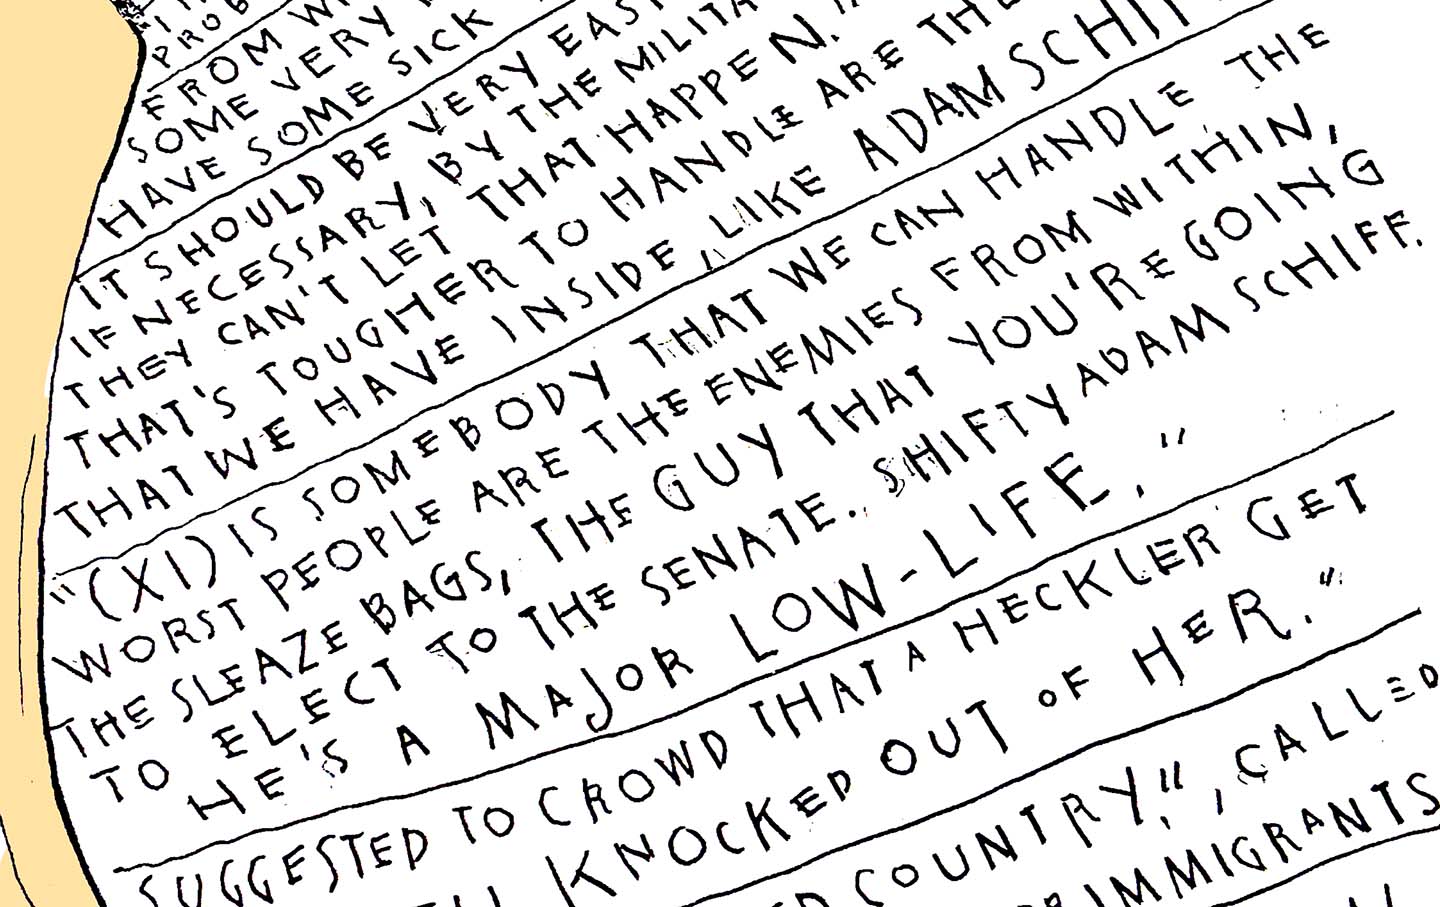 PROB
FROM W
SOME VERY
HAVE SOME SICK
IT SHOULD BE VERY EAS
IF NECESSARY, BY THE MILITA
THEY CAN'T LET THAT HAPPEN.
THAT'S TOUGHER TO HANDLE ARE THE
THAT WE HAVE INSIDE, LIKE ADAM SCHIF
"(XI) IS SOMEBODY THAT WE CAN HANDLE THE
WORST PEOPLE ARE THE ENEMIES FROM WITHIN,
THE SLEAZE BAGS, THE GUY THAT YOU'RE GOING
TO ELECT TO THE SENATE. SHIFTY ADAM SCHIFF.
HE'S A MAJOR LOW-LIFE."
SUGGESTED TO CROWD THAT A HECKLER GET
KNOCKED OUT OF HER."
ED COUNTRY", CALLED
IMMIGRANTS